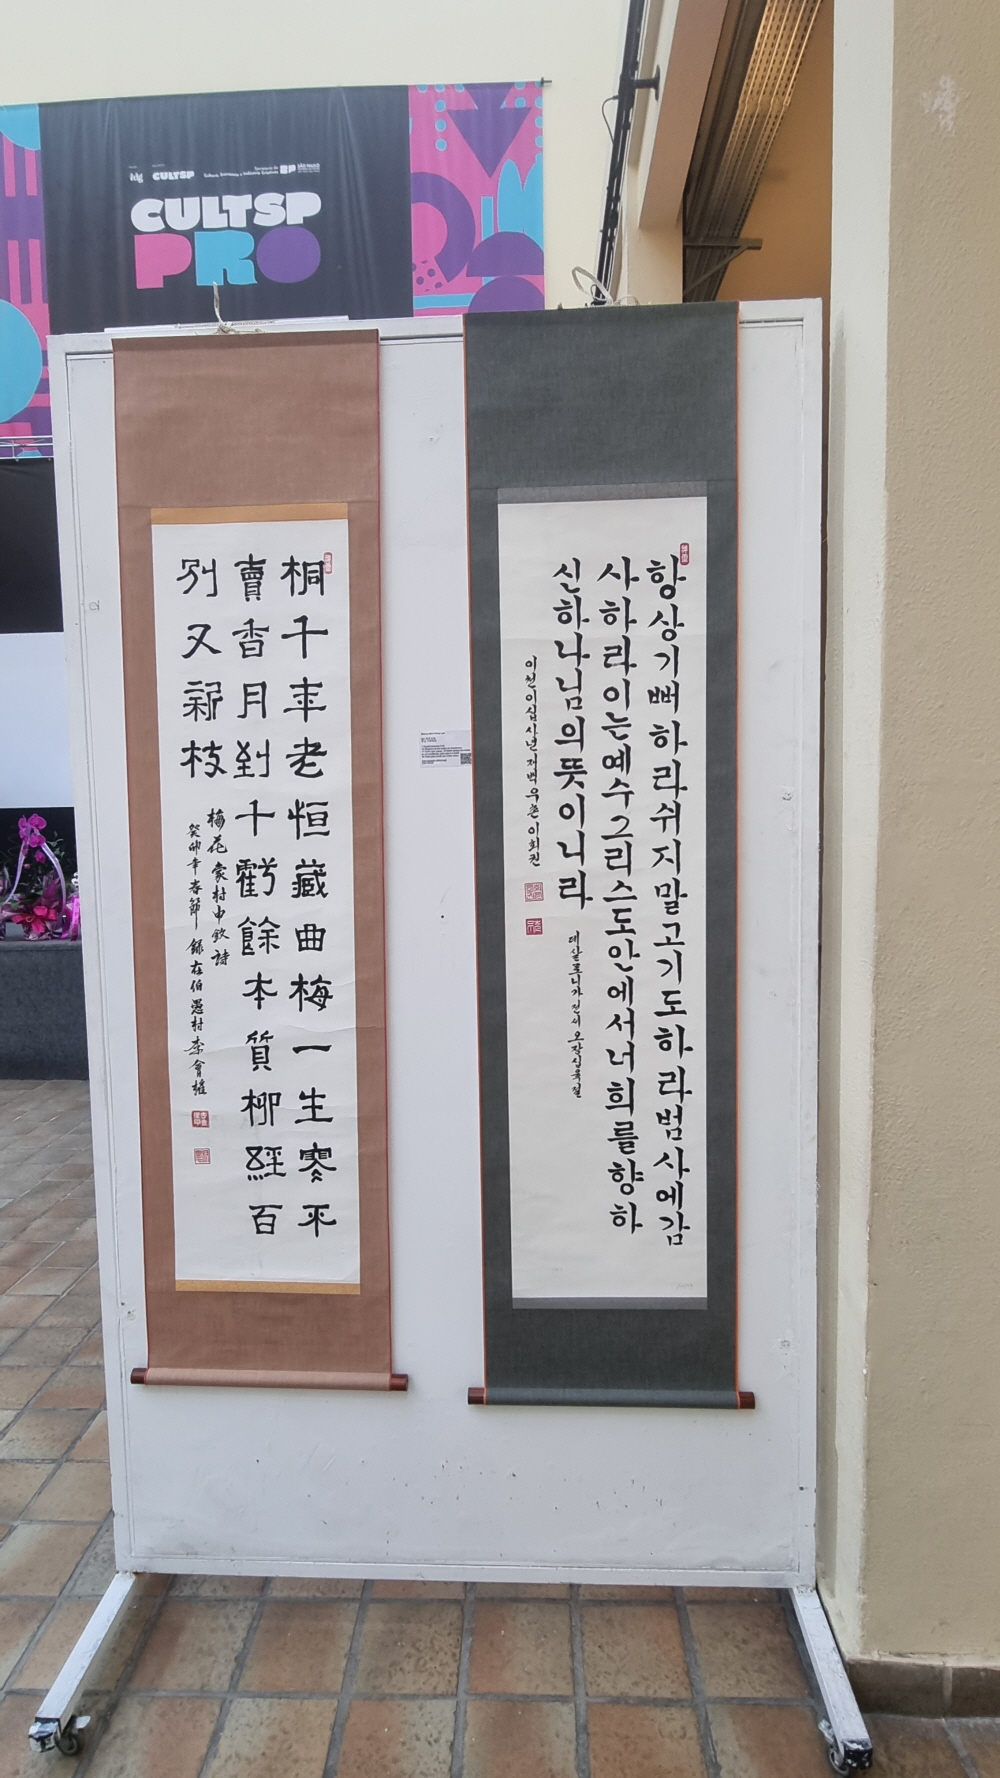 CULTSP
CULTSP
PRO
桐千年老恒藏曲梅一生寒不
賣香月到千虧餘本質柳經百
別又新枝
梅花 象村申欽詩
癸卯年春節 錄在伯 愚村 李會權
항상기뻐하라쉬지말고기도하라범사에감
사하라이는예수그리스도안에서너희를향하
신하나님의뜻이니라
데살로니가전서 오장십육절
이천이십사년저백우촌이회권